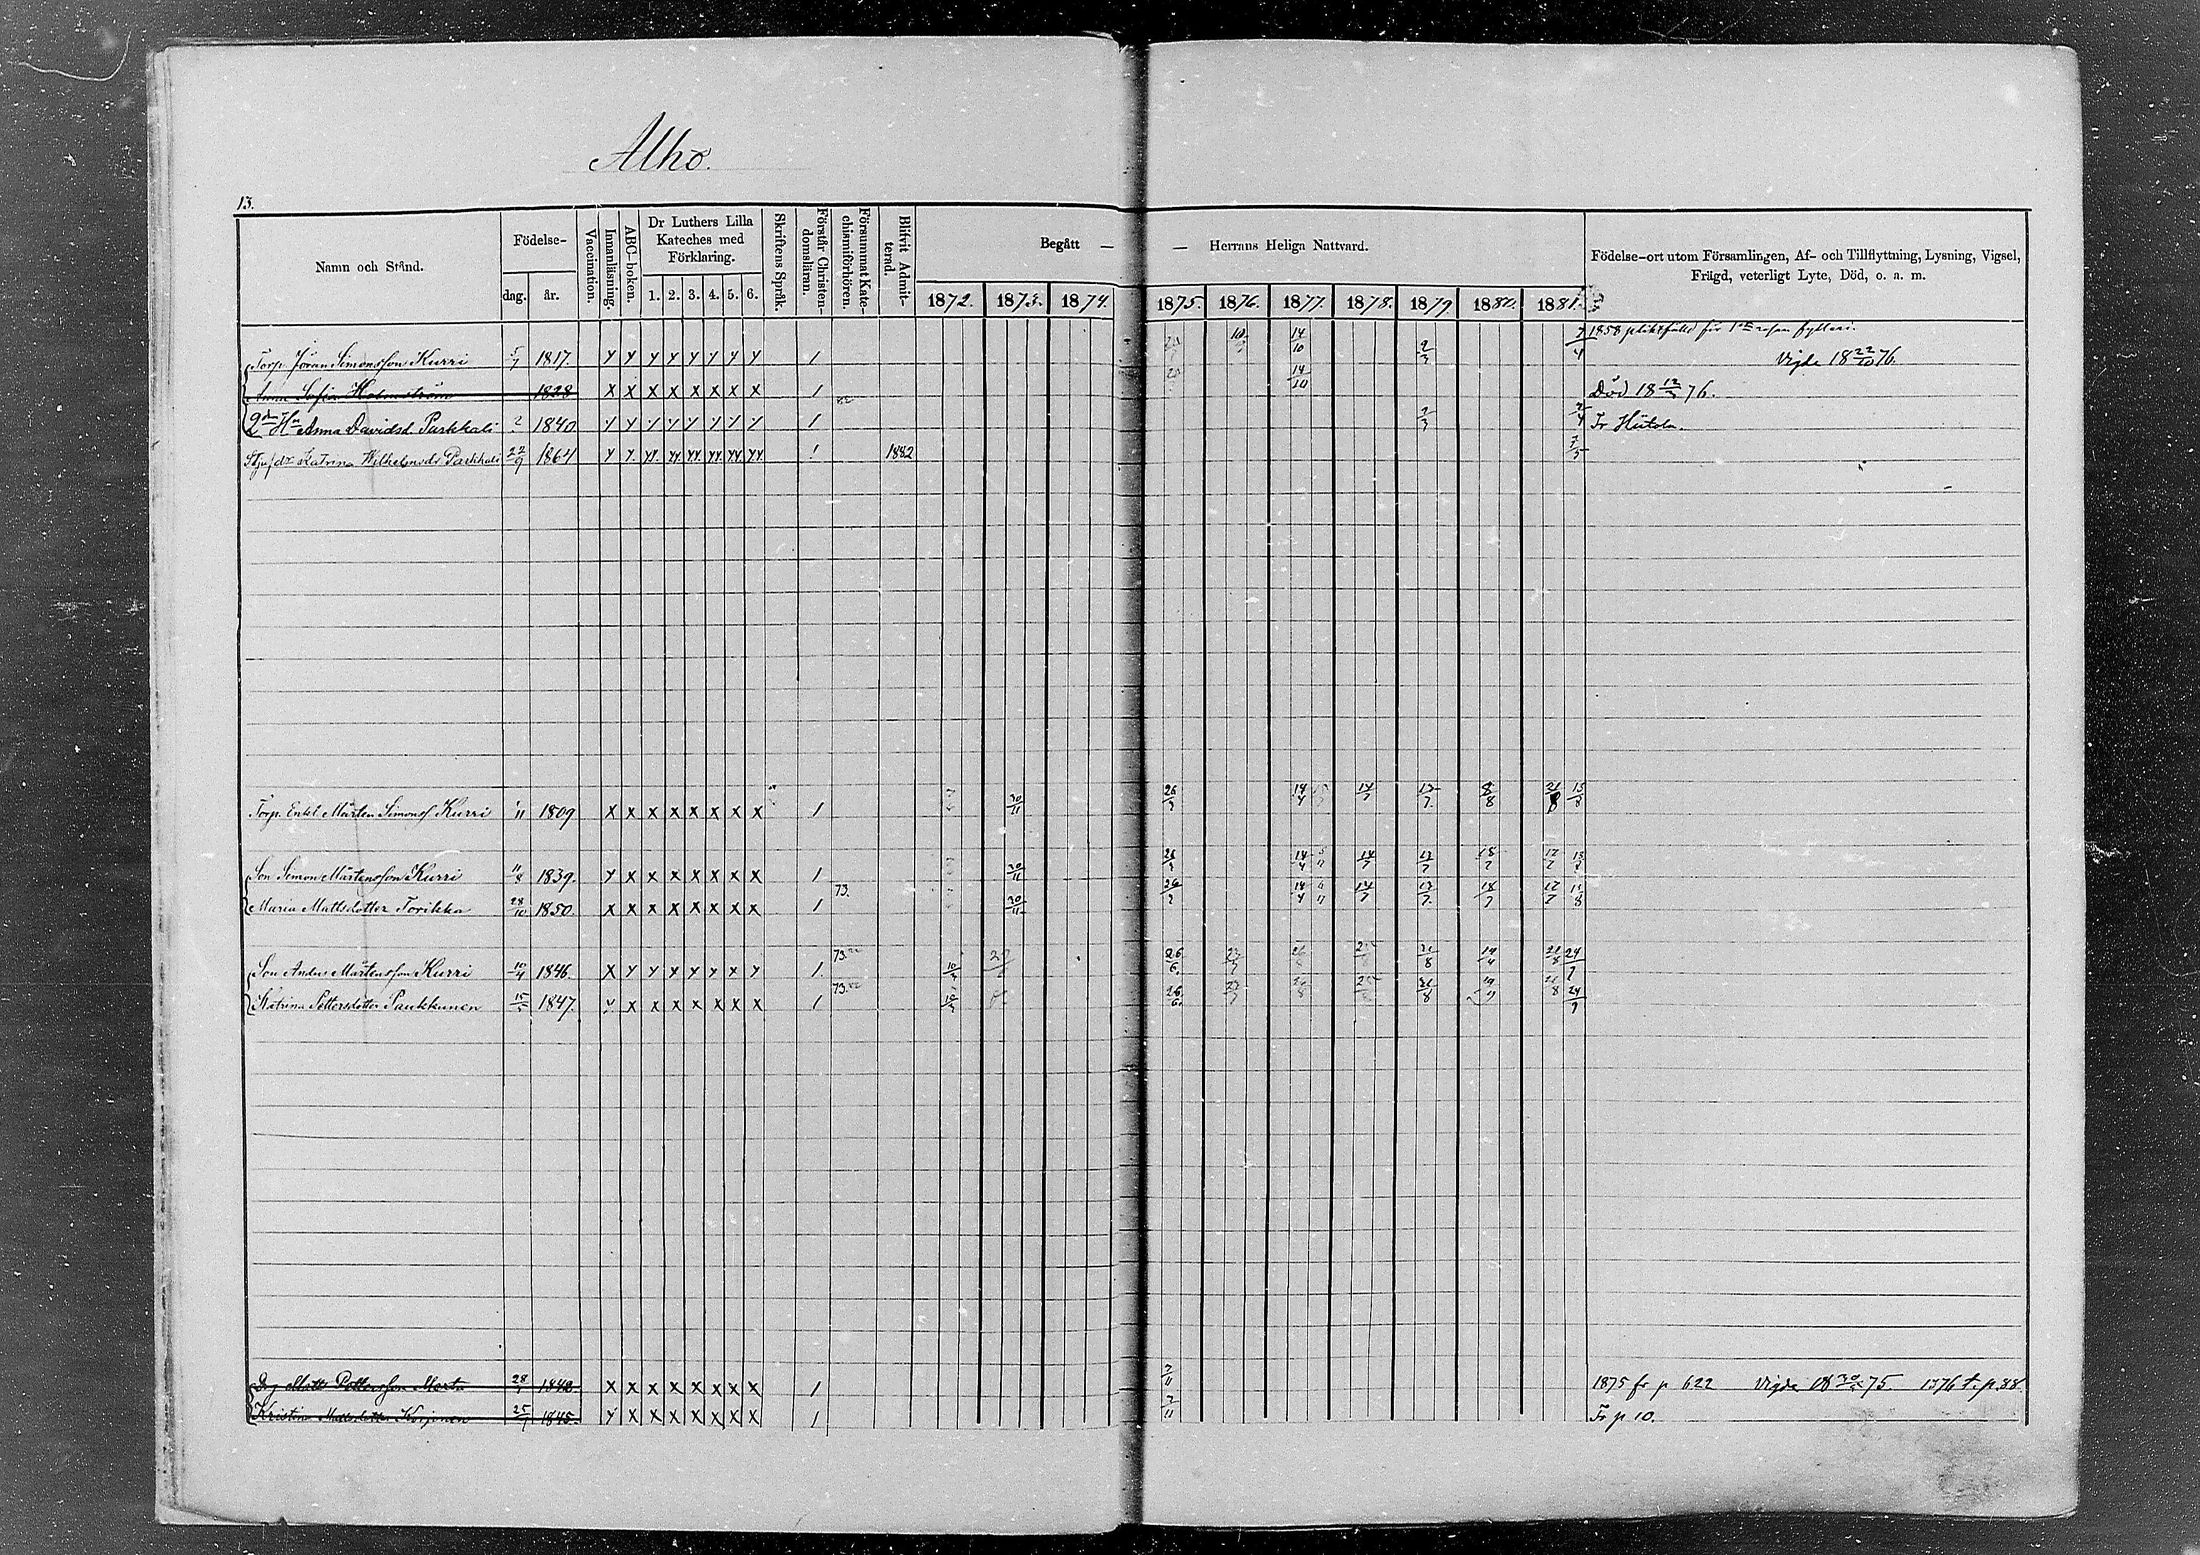 Alho.
13.
Namn och Stånd.
Födelse-
dag. år.
Vaccination.
Innanläsning.
ABC-boken.
Dr Luthers Lilla
Kateches med
Förklaring.
1. 2. 3. 4. 5. 6.
Skriftens Språk.
Förstår Christen-
domsläran.
Försummat Kate-
chismiförhören.
Blifvit Admit-
terad.
Begått — — Herrans Heliga Nattvard.
1872. 1873. 1874. 1875. 1876. 1877. 1878. 1879 1880. 1881.
Födelse-ort utom Församlingen, Af- och Tillflyttning, Lysning, Vigsel,
Frägd, veterligt Lyte, Död, o. a. m.
1858 pliktfälld för 1sta resan fylleri.
Torp. Jöran Simonsson Kurri 5/7 1817. Y Y Y Y Y Y Y Y 1 14/10 2/3 7/4 Vigde 18 22/10 76.
Anna Sofia Holmström 1828 X X X X X X X X 1 14/10 Död 18 76.
2dra Hu Anna Davidsd. Parkkali 1840 Y Y Y Y Y Y Y Y 1 2/3 7/4 Fr Hiitola.
Styfdr Katrina Wilhelmsdr Parkkali 22/9 1864 Y Y YY YY YY YY YY YY 1 1882
Torp. Enkl Mårten Simonss Kurri 1/11 1809 X X X X X X X X 1 30/11 26/3 14/4 14/7 8/8 15/8
Son Simon Mårtensson Kurri 11/8 1839. Y X X X X X X X 1 30/11 14/4 14/7 18/7 17/7
Maria Mattsdotter Torikka 28/10 1850. X X X X X X X X 1 73. 30/11 14/4 14/7 17/7 18/7 17/7
Son Anders Mårtensson Kurri 10/4 1846. X Y Y Y Y Y Y Y 1 73. 26/6. 21/8 24/7
Katrina Pettersdotter Paukkunen 1847. Y X X X X X X X 1 73. 26/6. 21/8 24/7
Matts Pettersson Marttu 28 1842 X X X X X X X X 1 7/11 1875 fr p 622 Vigde 18 75. 1876 t. p. 88
Kristina Mattsdotter Korjonen 25 1845. Y X X X X X X X 1 7/11 Fr p 10.